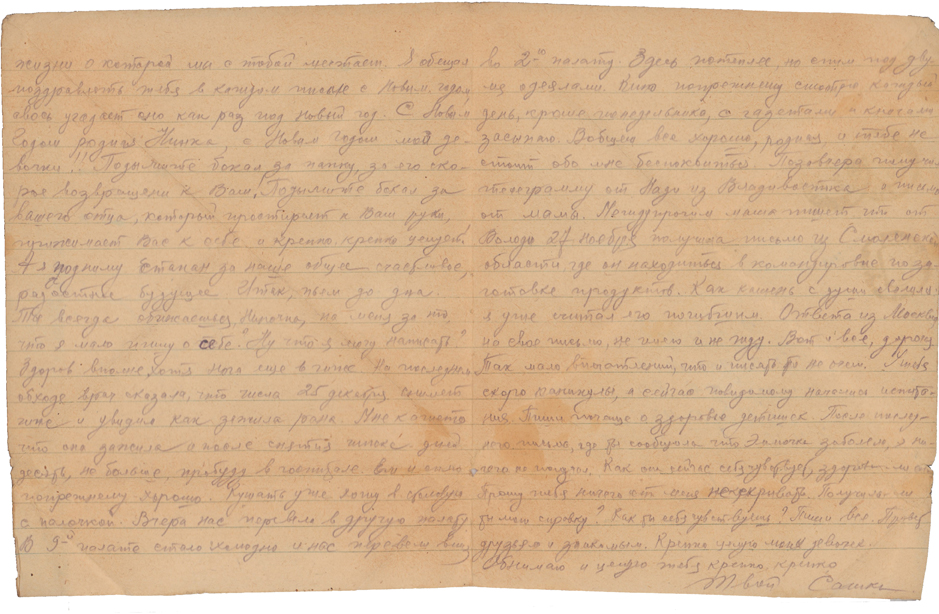 жизни о которой мы с тобой мечтаем. Я обещал
поздравлять тебя в каждом письме с Новым годом,
авось угодает оно как раз под новый год. С Новым
Годом родная Нинка, с Новым Годом мои де-
вочки!! Подымите бокал за папку, за его ско-
рое возвращение к Вам, Подымите бокал за
вашего отца, который простирает к Вам руки,
прижимает Вас к себе и крепко, крепко целует.
А я подниму стакан за наше общее счастливое,
радостное будущее. Итак, пьем до дна.
Ты всегда обижаешься, Ниночка, на меня за то
что я мало пишу о себе. Ну что я могу написать?
Здоров вполне, хотя нога еще в гипсе. На последнем
обходе врач сказал, что числа 25 декабря снимет
гипс и увидим как зажила рана. Мне кажется
что она зажила и после снятия гипса дней
десять, не больше, пробуду в госпитале. Ем и сплю
попрежнему хорошо. Кушать уже хожу в столовую
с палочкой. Вчера нас перевели в другую палату
В 9-й палате стало холодно и нас перевели вниз
во 2-ю палату. Здесь потеплее, но спим под дву-
мя одеялами. Кино попрежнему смотрю каждый
день, кроме понедельника, с газетами и книгами
засыпаю. Вобщем все хорошо, родная и тебе не
стоит обо мне беспокоиться. Позавчера получил
телеграмму от Нади из Владивостока и письмо
от мамы. Между прочим мама пишет что от
Володи 27 ноября получила письмо из Смоленской
области где он находиться в командировке по за-
готовке продуктов. Как камень с души свалился
я уже считал его погибшим. Ответа из Москвы
на свое письмо, не имею и не жду. Вот и все,
Так мало впечатлений, что и писать то не о чем. У тебя
скоро каникулы, а сейчас повидимому начались испыта-
ния. Пиши почаще о здоровье детишек. После послед-
него письма, где ты сообщала что Эммочка заболела, я ни-
чего не получал. Как она сейчас себя чувствует, здорова ли она
Прошу тебя ничего от меня не скрывать. Получила ли
ты мою справку? Как ты себя чувствуешь? Пиши все. Привет
друзьям и знакомым. Крепко целую моих девочек.
Обнимаю и целую тебя крепко, крепко
Твой Сашка